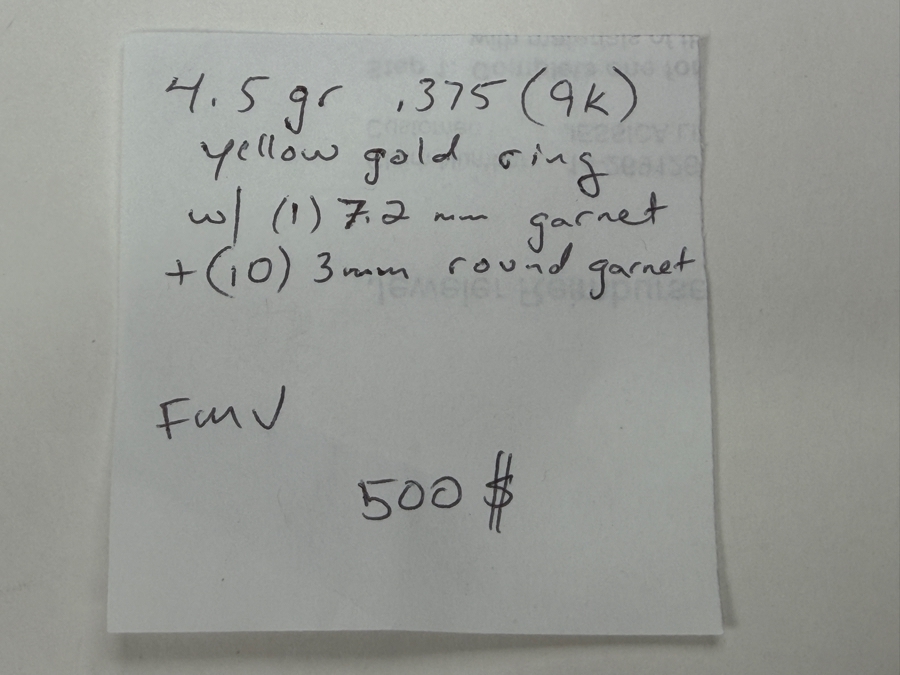 4.5 gr .375 (9K)
yellow gold ring
w/ (1) 7.2 mm garnet
+ (10) 3mm round garnet
FMV
500 $